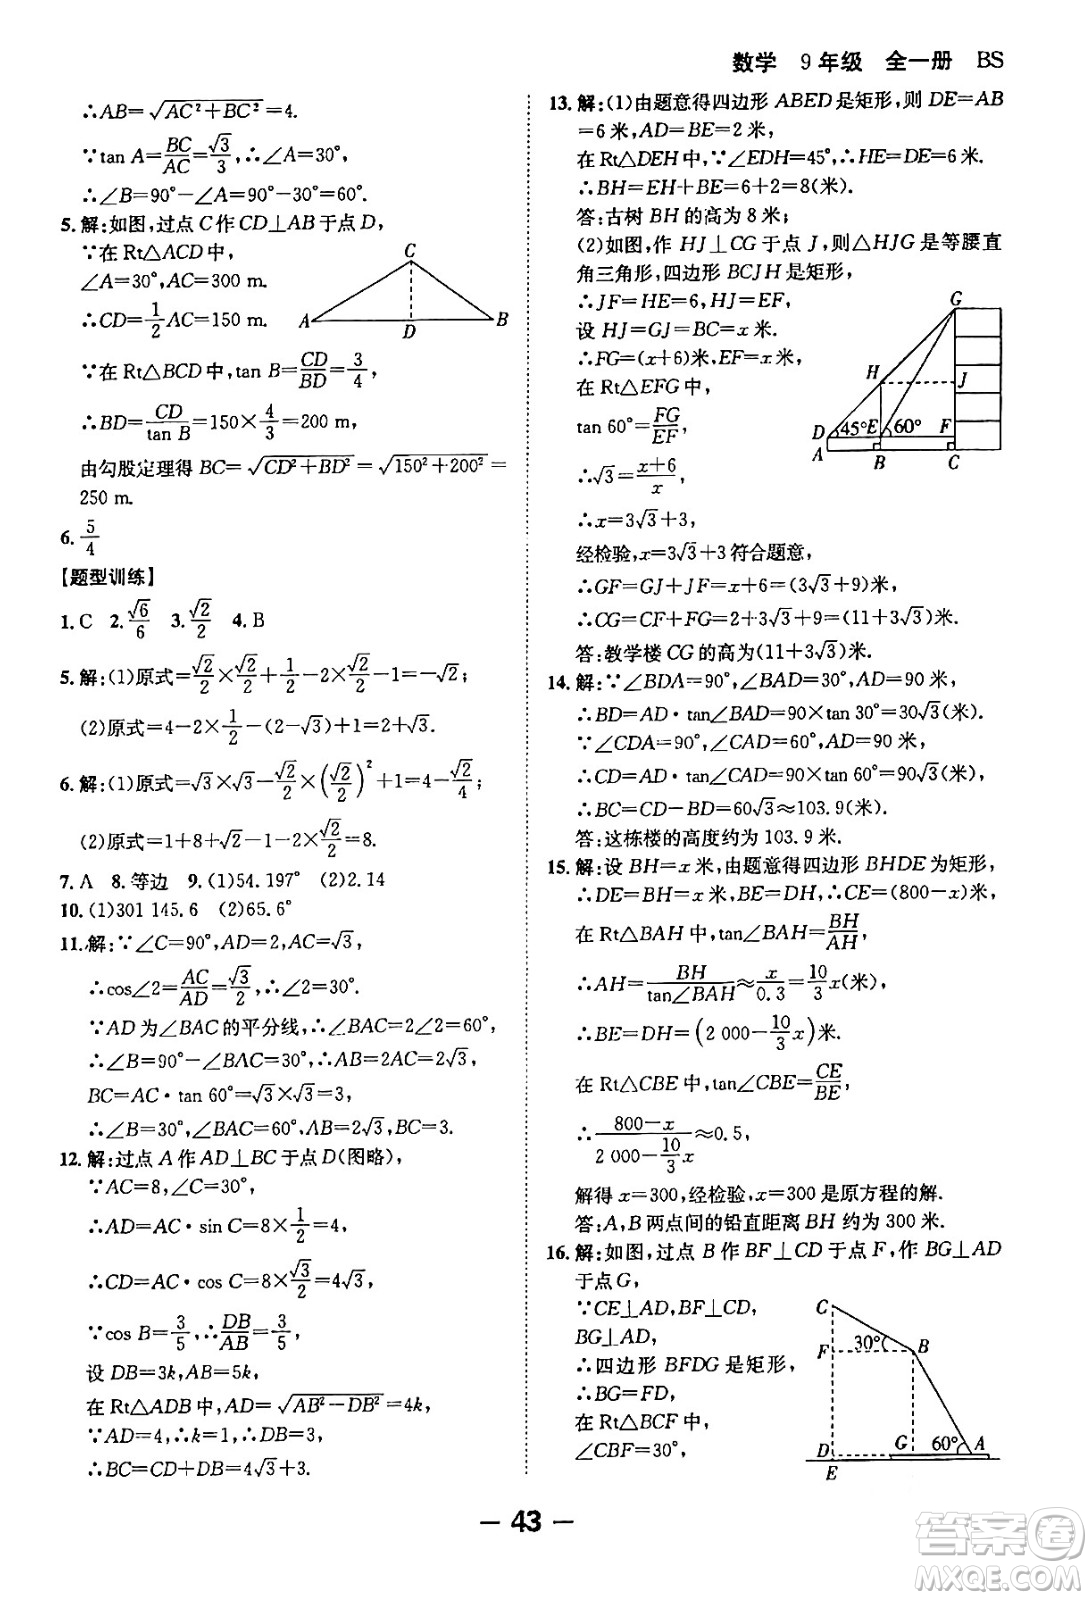 数学 9年级 全一册 BS
∴AB=√(AC²+BC²)=4.
∵tan A=BC/AC=√3/3,∴∠A=30°,
∴∠B=90°-∠A=90°-30°=60°.
5.解:如图,过点C作CD⊥AB于点D,
∵在Rt△ACD中,
∠A=30°,AC=300 m.
∴CD=1/2AC=150 m.
∵在Rt△BCD中,tan B=CD/BD=3/4,
∴BD=CD/tan B=150×4/3=200 m,
由勾股定理得BC=√(CD²+BD²)=√(150²+200²)=
250 m.
A D B C
6.5/4
【题型训练】
1.C 2.√6/6 3.√2/2 4.B
5.解:(1)原式=√2/2×√2/2+1/2-2×√2/2=1-√2;
(2)原式=4-2×1/2-(2-√3)+1=2+√3.
6.解:(1)原式=√3×√3-√2/2×(√2/2)²+1=4-√2/4;
(2)原式=1+8+√2-1-2×√2/2=8.
7.A 8.等边 9.(1)54.197° (2)2.14
10.(1)301 145.6 (2)65.6°
11.解:∵∠C=90°,AD=2,AC=√3,
∴cos∠2=AC/AD=√3/2,∴∠2=30°.
∵AD为∠BAC的平分线,∴∠BAC=2∠2=60°,
∴∠B=90°-∠BAC=30°,∴AB=2AC=2√3,
BC=AC·tan 60°=√3×√3=3,
∴∠B=30°,∠BAC=60°,AB=2√3,BC=3.
12.解:过点A作AD⊥BC于点D(图略),
∵AC=8,∠C=30°,
∴AD=AC·sin C=8×1/2=4,
∴CD=AC·cos C=8×√3/2=4√3,
∵cos B=3/5,∴DB/AB=3/5,
设DB=3k,AB=5k,
在Rt△ADB中,AD=√(AB²-DB²)=4k,
∵AD=4,∴k=1,∴DB=3,
∴BC=CD+DB=4√3+3.
13.解:(1)由题意得四边形ABED是矩形,则DE=AB
=6米,AD=BE=2米,
在Rt△DEH中,∵∠EDH=45°,∴HE=DE=6米,
∴BH=EH+BE=6+2=8(米).
答:古树BH的高为8米;
(2)如图,作HJ⊥CG于点J,则△HJG是等腰直
角三角形,四边形BCJH是矩形,
∴JF=HE=6,HJ=EF,
设HJ=GJ=BC=x米,
∴FG=(x+6)米,EF=x米,
在Rt△EFG中,
tan 60°=FG/EF,
∴√3=(x+6)/x,
∴x=3√3+3,
经检验,x=3√3+3符合题意,
∴GF=GJ+JF=x+6=(3√3+9)米,
∴CG=CF+FG=2+3√3+9=(11+3√3)米.
答:教学楼CG的高为(11+3√3)米.
G H J D 45° E 60° F A B C
14.解:∵∠BDA=90°,∠BAD=30°,AD=90米,
∴BD=AD·tan∠BAD=90×tan 30°=30√3(米).
∵∠CDA=90°,∠CAD=60°,AD=90米,
∴CD=AD·tan∠CAD=90×tan 60°=90√3(米),
∴BC=CD-BD=60√3≈103.9(米).
答:这栋楼的高度约为103.9米.
15.解:设BH=x米,由题意得四边形BHDE为矩形,
∴DE=BH=x米,BE=DH,∴CE=(800-x)米,
在Rt△BAH中,tan∠BAH=BH/AH,
∴AH=BH/tan∠BAH≈x/0.3=10/3x(米),
∴BE=DH=(2 000-10/3x)米.
在Rt△CBE中,tan∠CBE=CE/BE,
∴(800-x)/(2 000-10/3x)≈0.5,
解得x=300,经检验,x=300是原方程的解.
答:A,B两点间的铅直距离BH约为300米.
16.解:如图,过点B作BF⊥CD于点F,作BG⊥AD
于点G,
∵CE⊥AD,BF⊥CD,
BG⊥AD,
∴四边形BFDG是矩形,
∴BG=FD,
在Rt△BCF中,
∠CBF=30°,
C F 30° B D G 60° A E
— 43 —
答案圈
MXQE.COM